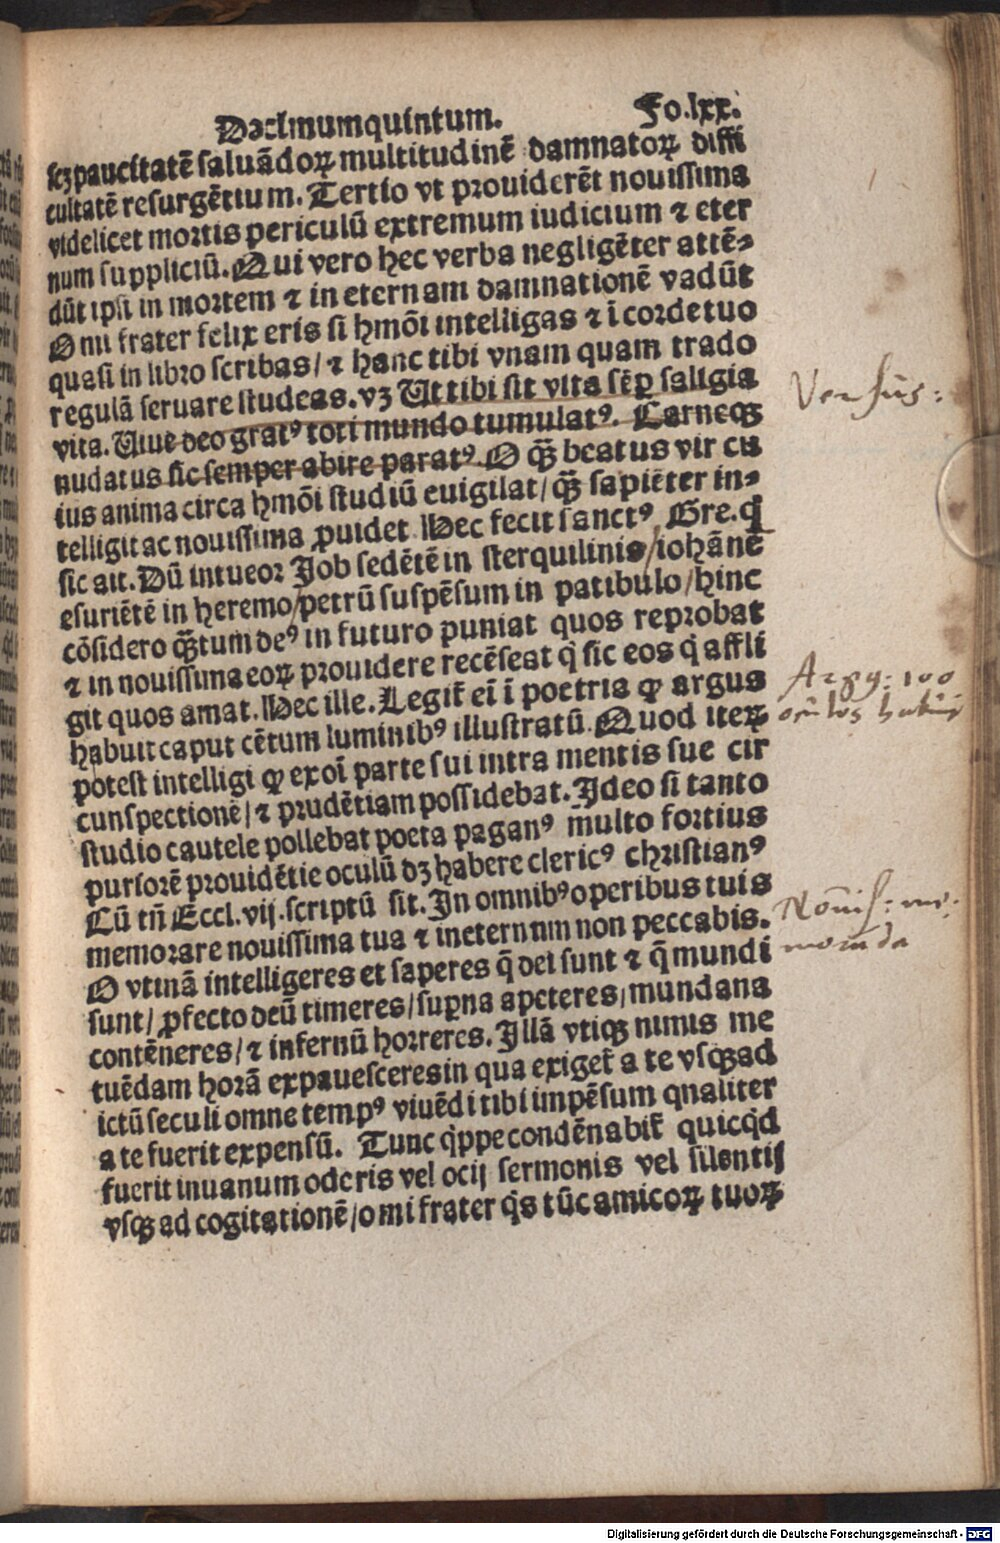 Decimumquintum. Fo.lxx.
scȝ paucitatē saluādoꝝ multitudinē damnatoꝝ diffi
cultatē resurgētium. Tertio vt prouiderēt nouissima
videlicet mortis periculū extremum iudicium ⁊ eter
num suppliciū. Qui vero hec verba negligēter attē⸗
dūt ipsi in mortem ⁊ in eternam damnationē vadūt
O mi frater felix eris si hmōi intelligas ⁊ ī corde tuo
quasi in libro scribas/ ⁊ hanc tibi vnam quam trado
regulā seruare studeas. vȝ Ut tibi sit vita sēꝑ saligia
vita. Uiue deo gratꝰ toti mundo tumulatꝰ. Carneqꝫ
nudatus sic semper abire paratꝰ O qꝫ̄ beatus vir cu
ius anima circa hmōi studiū euigilat/ qꝫ̄ sapiēter in⸗
telligit ac nouissima ꝓuidet Hec fecit sanctꝰ Gre. q̇
sic ait. Dū intueor Job sedētē in sterquilinis/iohānē
esuriētē in heremo/petrū suspēsum in patibulo/hinc
cōsidero qꝫ̄tum deꝰ in futuro puniat quos reprobat
⁊ in nouissima eoꝝ prouidere recēseat q̇ sic eos q̇ affli
git quos amat. Hec ille. Legit̄ ei ī poetria ꝙ argus
habuit caput cētum luminibꝰ illustratū. Quod iteꝝ
potest intelligi ꝙ ex oī parte sui intra mentis sue cir
cunspectionē/ ⁊ prudētiam possidebat. Ideo si tanto
studio cautele pollebat poeta paganꝰ multo fortius
puriorē prouidētie oculū dȝ habere clericꝰ christianꝰ
Cū tn̄ Eccl. vij. scriptū sit. In omnibꝰ operibus tuis
memorare nouissima tua ⁊ ineternnm non peccabis.
O vtinā intelligeres et saperes q̄ dei sunt ⁊ q̄ mundi
sunt/ ꝓfecto deū timeres/ suꝑna apeteres/ mundana
contēneres/ ⁊ infernū horreres. Illā vtiqꝫ nimis me
tuēdam horā expauesceres in qua exiget̄ a te vsqꝫ ad
ictū seculi omne tempꝰ viuēdi tibi impēsum qnaliter
a te fuerit expensū. Tunc q̇ppe condēnabit̄ quicq̇d
fuerit inuanum oderis vel ocij sermonis vel silentij
vsqꝫ ad cogitationē/o mi frater q̇s tūc amicoꝝ tuoꝝ
Versus:
Argꝰ: 100
oculos habuit
Nouiss: me⸗
moranda
Digitalisierung gefördert durch die Deutsche Forschungsgemeinschaft - DFG